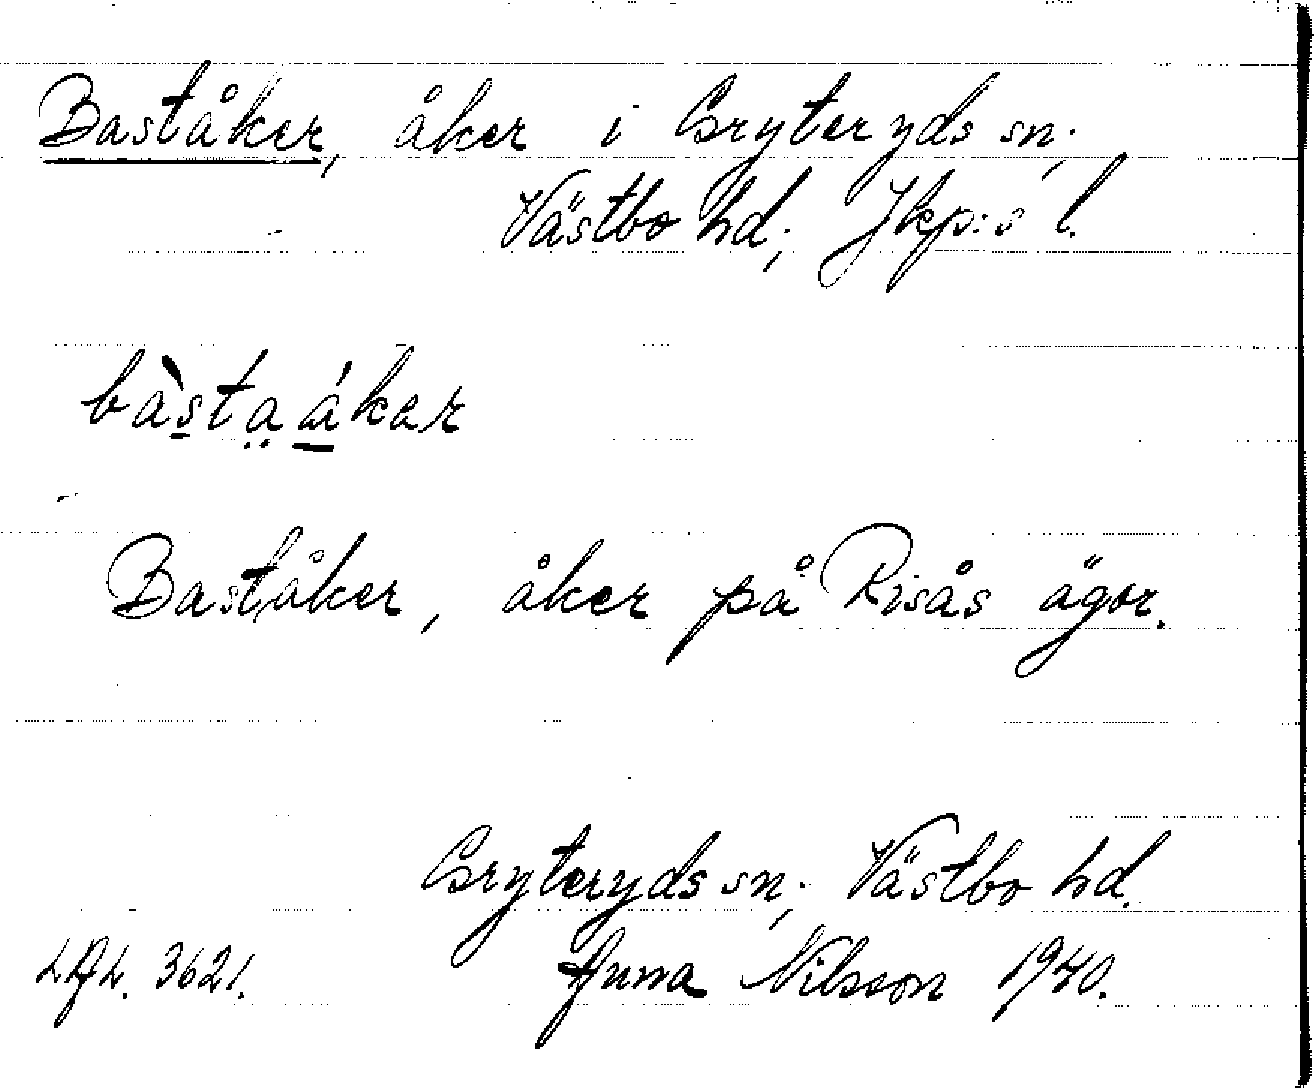 Baståker, åker i Gryteryds sn;
Västbo hd; Jkp:s l.
bàsta̤ákar
Baståker, åker på Risås ägor.
Gryteryds sn; Västbo hd.
3621. Anna Nilsson 1940.